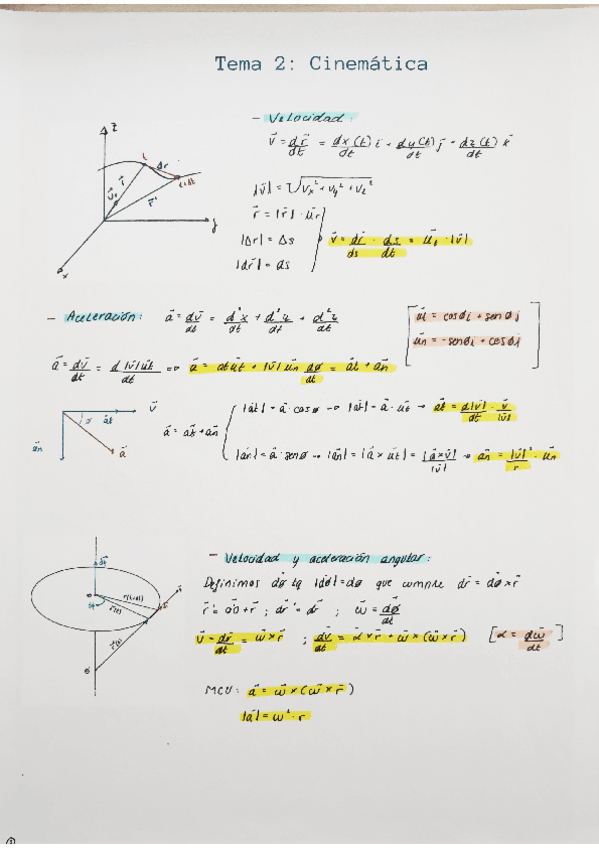 Tema 2: Cinemática
- Velocidad:
v⃗ = dr⃗/dt = dx(t)/dt i + dy(t)/dt j + dz(t)/dt k⃗
|v⃗| = √(vx² + vy² + vz²)
r⃗ = |r⃗| · u⃗r
|Δr| = Δs
v⃗ = dr⃗/ds · ds/dt = u⃗t · |v⃗|
|dr⃗| = ds
z
t
Δr
r⃗
r⃗'
t+Δt
y
x
- Aceleración: a⃗ = dv⃗/dt = d²x/dt + d²z/dt + d²z/dt
[u⃗t = cosØi + senØj
u⃗n = -senØi + cosØj]
a⃗ = dv⃗/dt = d|v⃗|u⃗t/dt => a⃗ = at u⃗t + |v⃗| u⃗n dø/dt = a⃗t + a⃗n
v⃗
a⃗t
ø
a⃗n
a⃗
a⃗ = a⃗t + a⃗n
|a⃗t| = a⃗ · cosø → |a⃗t| = a⃗ · u⃗t → a⃗t = d|v⃗|/dt · v⃗/|v⃗|
|a⃗n| = a⃗ · senø → |a⃗n| = |a⃗ x u⃗t| = |a⃗ x v⃗|/|v⃗| → a⃗n = |v⃗|²/r · u⃗n
- Velocidad y aceleración angular:
Definimos dø⃗ tq |dø⃗| = dø que cumple dr⃗ = dø⃗ x r⃗
r⃗' = o'o + r⃗ ; dr⃗' = dr⃗ ; w⃗ = dø⃗/dt
v⃗ = dr⃗/dt = w⃗ x r⃗ ; dv⃗/dt = α⃗ x r⃗ + w⃗ x (w⃗ x r⃗) [α⃗ = dw⃗/dt]
MCU: a⃗ = w⃗ x (w⃗ x r⃗)
|a⃗| = w² · r